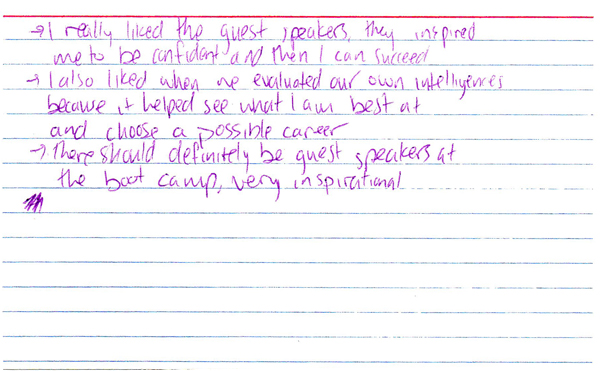 → I really liked the guest speakers, they inspired
me to be confident and then I can succeed
→ I also liked when we evaluated our own intelligences
because it helped see what I am best at
and choose a possible career
→ There should definitely be guest speakers at
the boot camp, very inspirational